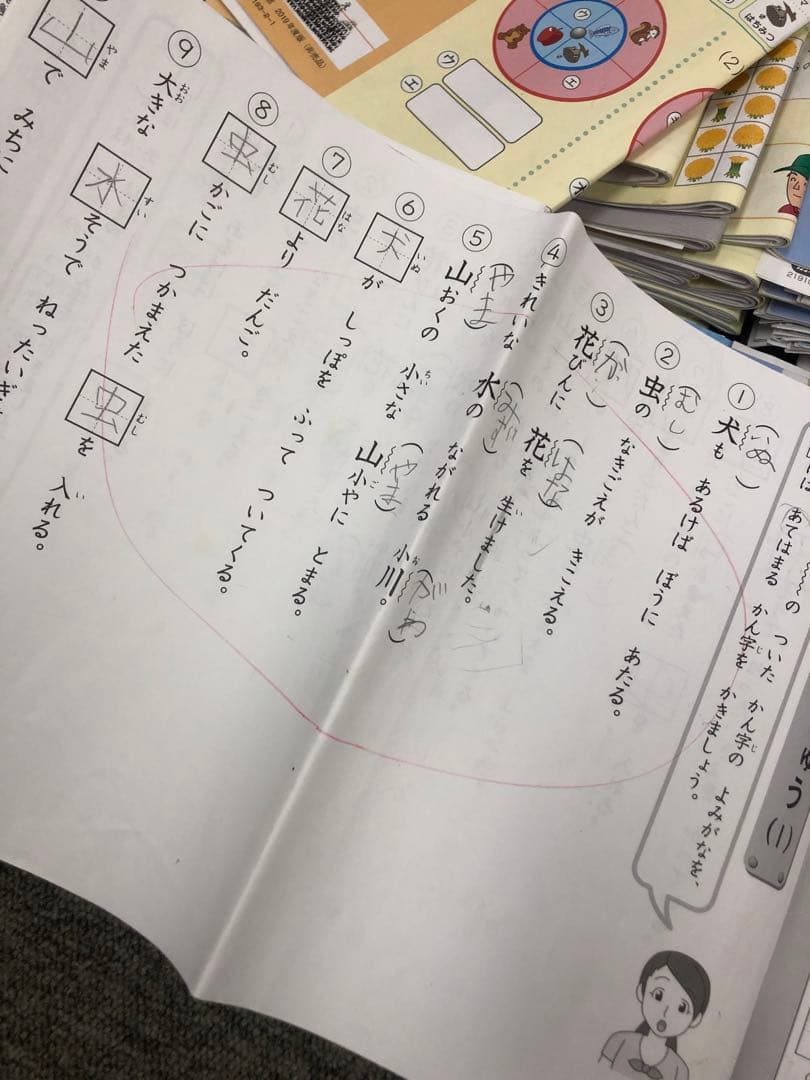 ゆう(1)
の ついた かん字の よみがなを、
あてはまる かん字を かきましょう。
じ
じ
① 犬も あるけば ぼうに あたる。
(いぬ)
② 虫の なきごえが きこえる。
(むし)
③ 花びんに 花を 生けました。
(か)
(はな)
い
④ きれいな 水の ながれる 小川。
(みず)
お
(がわ)
⑤ 山おくの 小さな 山小やに とまる。
(やま)
ちい
(やま)
ご
⑥ 犬が しっぽを ふって ついてくる。
いぬ
⑦ 花より だんご。
はな
⑧ 虫かごに つかまえた 虫を 入れる。
むし
むし
い
⑨ 大きな 水そうで ねったいぎ
おお
すい
山で みちに
やま
2019年度版(非売品)
はちみつ
(2)
ウ
エ
エ